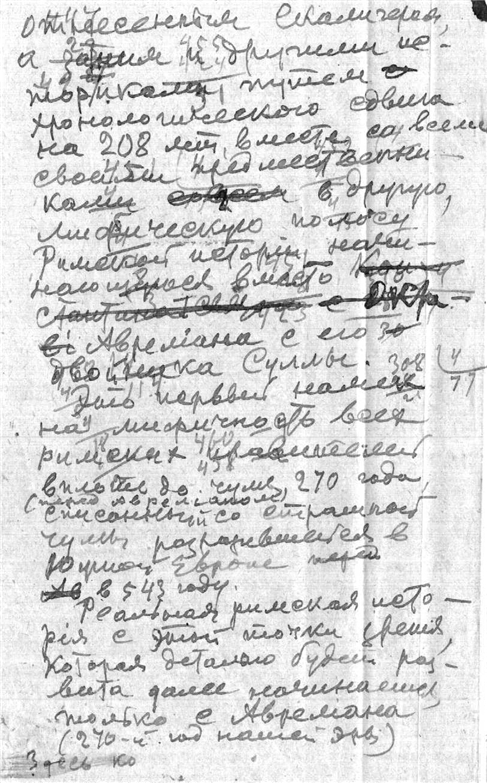 отнесенным Скалигером,
а за ним и другими ис-
ториками, путем
хронологического сдвига
на 208 лет, вместе со всеми
своими предшественни-
ками в другую,
мифическую полосу
Римской истории, начи-
нающуюся вместо
с
Аврелиана с его
двойника Суллы. 308 4
Это первый намек 77
на мифичность всех
римских правителей
вплоть до чумы 270 года,
(перед Аврелианом)
списанный со страшной
чумы разразившейся в
Южной Европе
в 543 году.
Реальная римская исто-
рия с этой точки зрения,
которая детально будет раз-
вита далее начинается
только с Аврелиана
(270-й год нашей эры)
Здесь ко